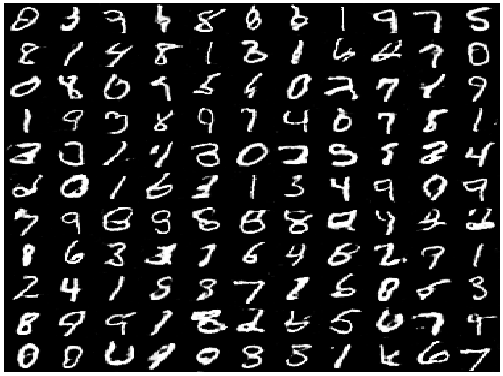 0 3 9 6 8 0 6 1 9 7 5
8 1 4 8 1 3 1 6 4 9 0
0 8 0 9 5 6 0 2 7 8 9
1 9 3 8 9 7 4 6 7 8 1
3 3 1 4 3 0 2 9 8 8 4
0 1 6 3 1 3 4 9 0 9
7 9 8 9 8 8 8 4
8 6 3 3 1 6 4 6 2 9 1
2 4 1 5 3 7 8 6 8 5 3
8 9 9 1 2 6 5 0 7 9
0 0 0 9 0 3 5 1 6 6 7